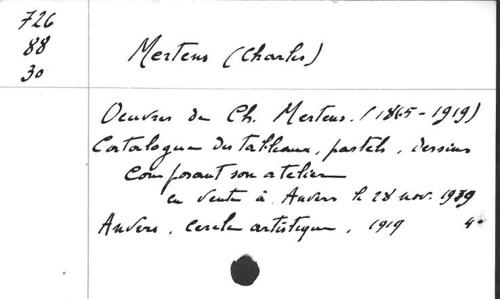 726
88
30
Mertens (Charles)
Oeuvres de Ch. Mertens. (1865-1919)
Catalogue des tableaux, pastels, dessins
composant son atelier
en vente à Anvers le 28 nov. 1919
Anvers, cercle artistique, 1919 4°